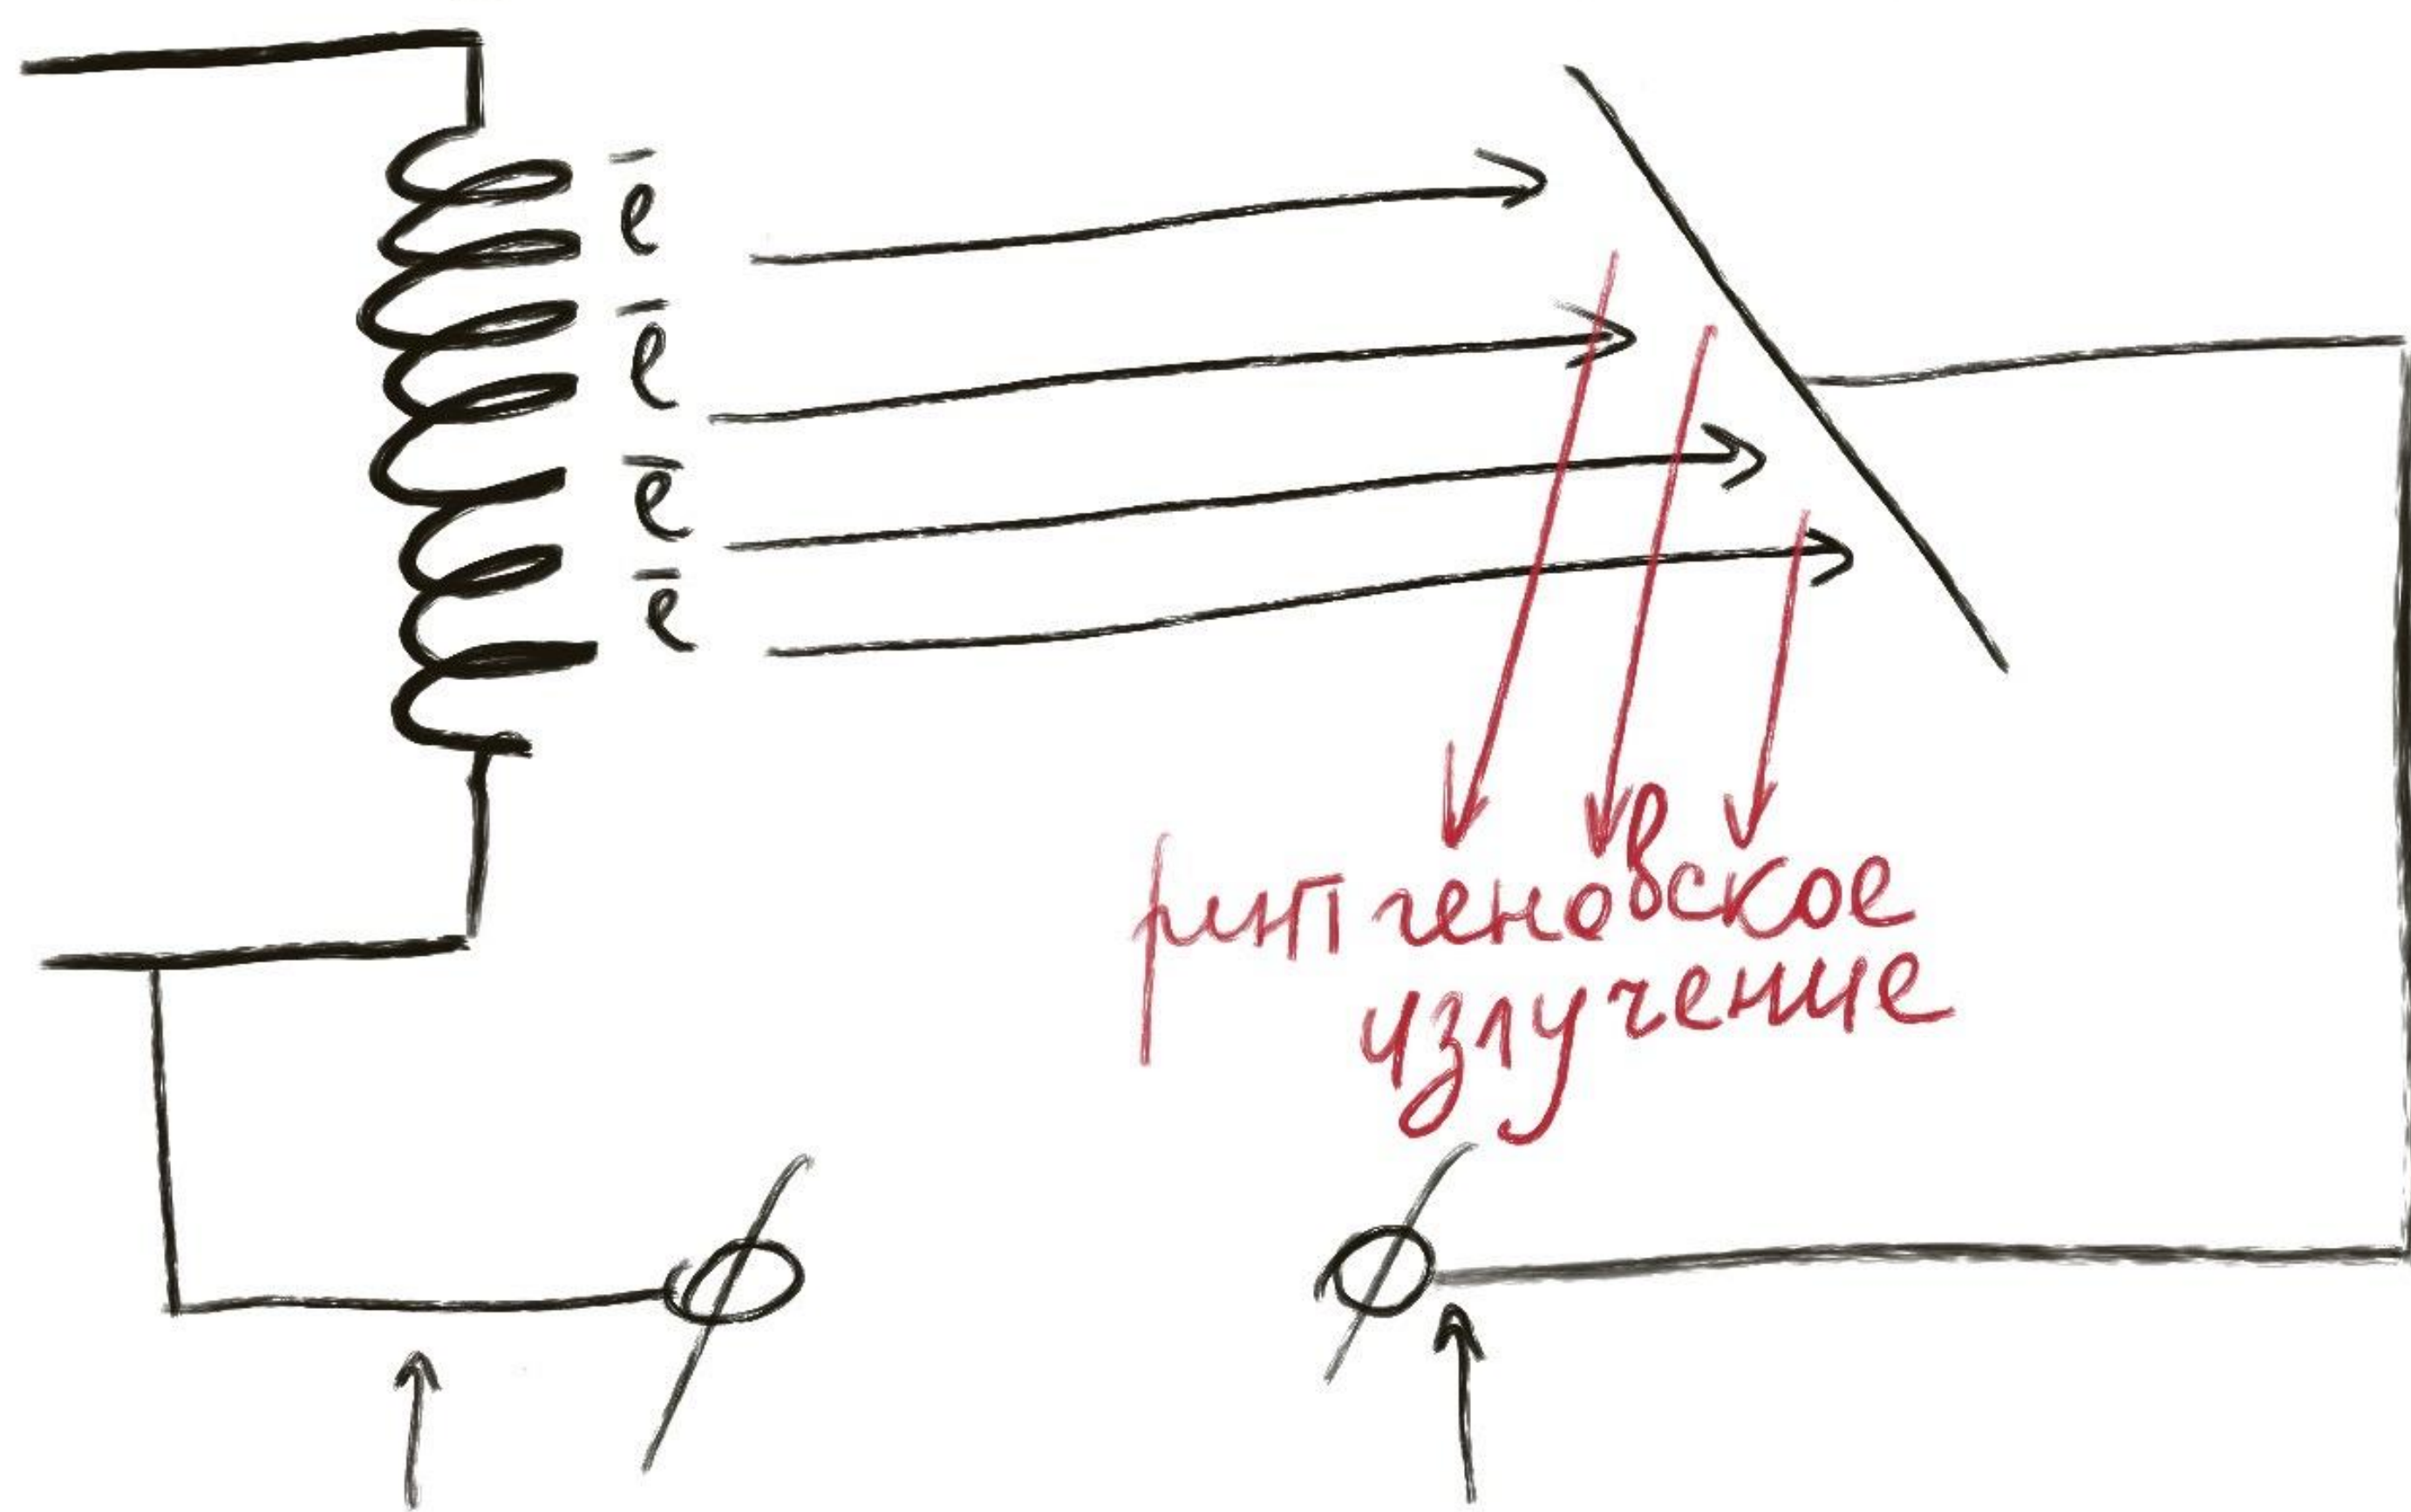 ē
ē
ē
ē
рентгеновское
излучение